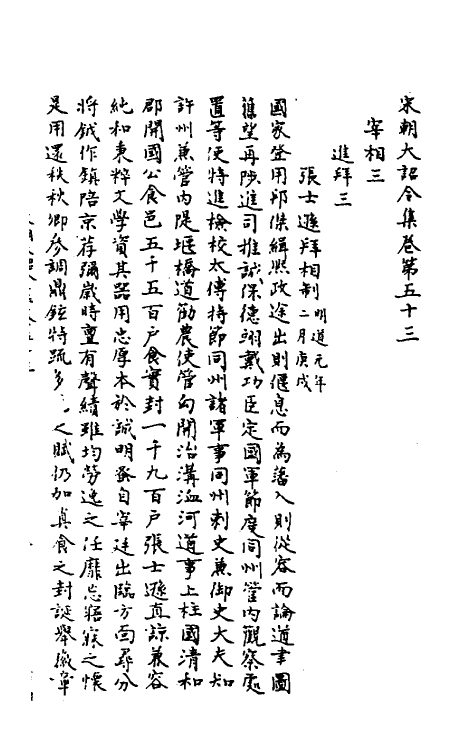 宋朝大詔令集卷第五十三
宰相三
進拜三
張士遜拜相制明道元年二月庚戌
國家登用邦傑緝熙政途出則偃息而為藩入則從容而論道圭圖
舊望再陟進司推誠保德翊戴功臣定國軍節度同州管內觀察處
置等使特進檢校太傅持節同州諸軍事同州刺史兼御史大夫知
許州兼管內隄堰橋道勸農使管勾開治溝洫河道事上柱國清和
郡開國公食邑五千五百戶食實封一千九百戶張士遜直諒兼容
純和秉粹文學資其器用忠厚本於誠明爰自宰廷出臨方面尋分
將鉞作鎮陪京荐彌歲時亶有聲績雖均勞逸之任靡忘寤寐之懷
是用還秩秋卿參調鼎鉉特疏多之賦仍加真食之封誕舉徽章